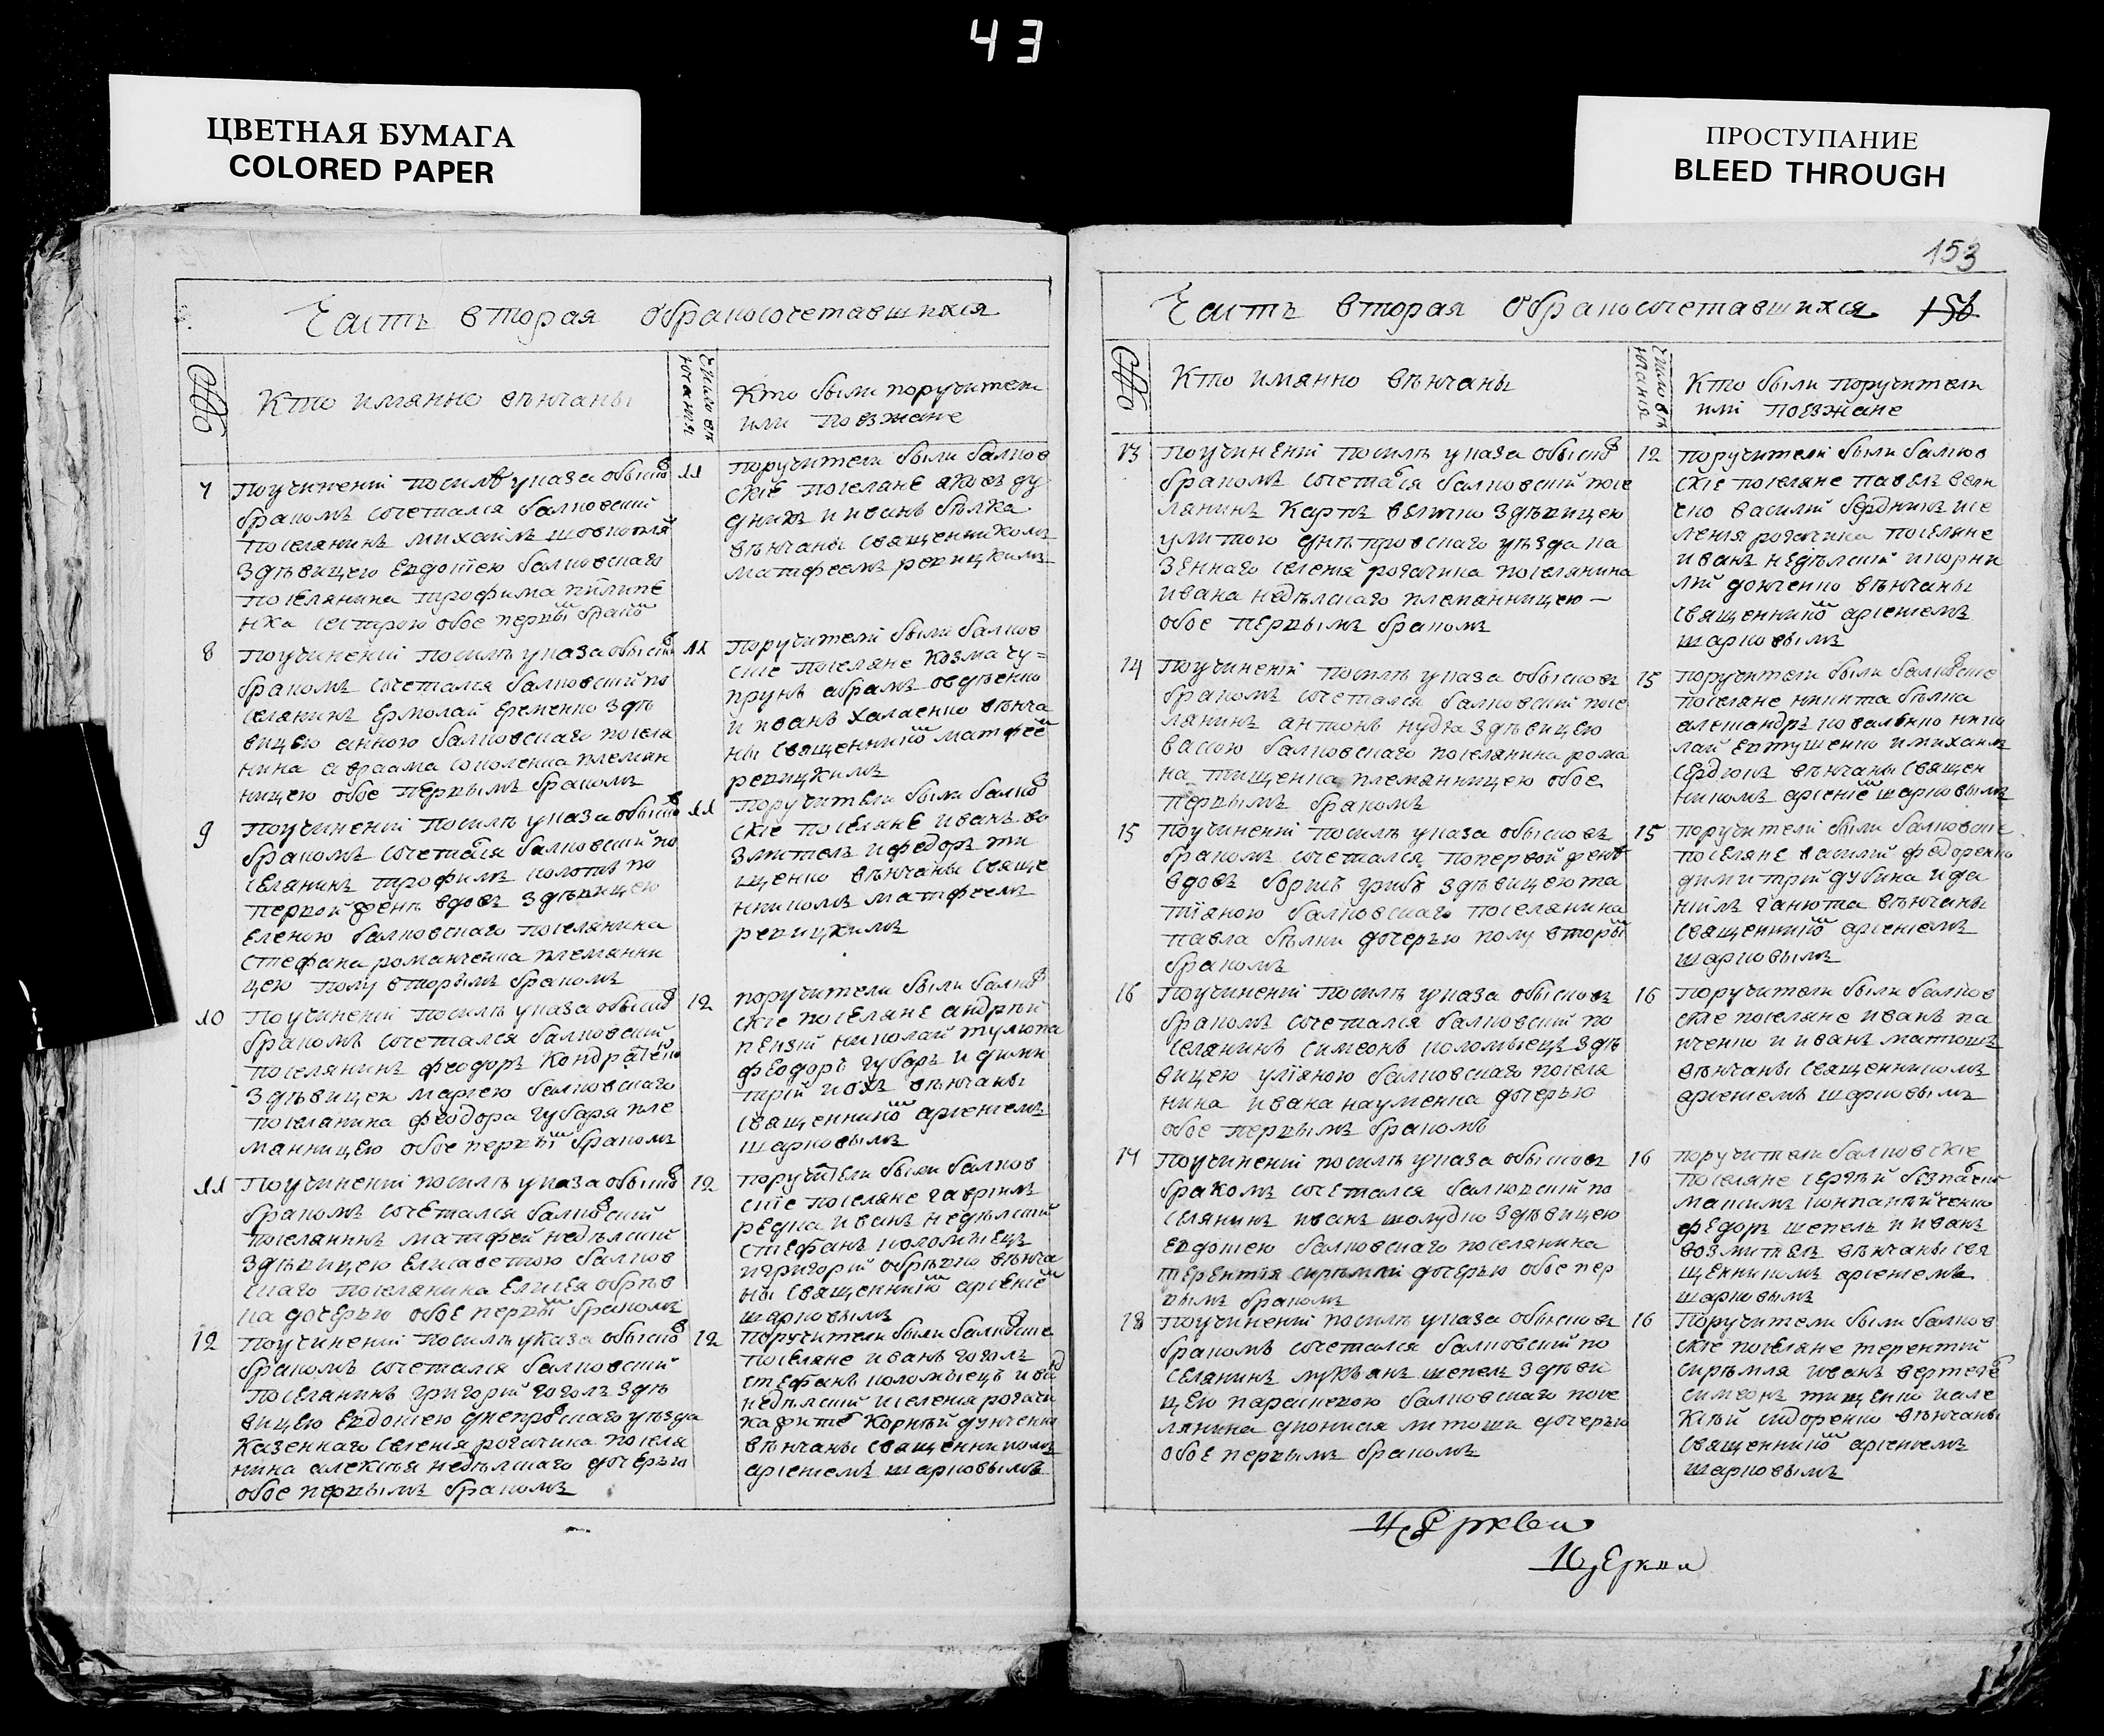 43
ЦВЕТНАЯ БУМАГА
COLORED PAPER
ПРОСТУПАНИЕ
BLEED THROUGH
Часть вторая обракосочетавшихся
Кто имянно венчаны
Число вѣнчания
Кто были поручители
или поезжане
7
Поучинении посилѣ указа обысковъ
бракомъ сочетался балковский
поселянинъ михаилъ
здѣвицею евдокиею балковскаго
поселянина трофима пилипе
нка сестрою обое первымъ бракомъ
11
поручители были балков
ские поселяне яковъ ду
дникъ и иванъ бѣлка
вѣнчаны священникомъ
матфеемъ ревицкимъ
8
Поучинении посилѣ указа обысковъ
бракомъ сочетался балковский по
селянинъ ермолай еременко здѣ
вицею анною балковскаго поселя
нина авраама соколенка племян
ницею обое первымъ бракомъ
11
поручители были балков
ские поселяне козма чу=
прунъ абрамъ овдѣенко
и иванъ халаенко вѣнча
ны священникомъ матфеемъ
ревицкимъ
9
Поучинении посилѣ указа обысковъ
бракомъ сочетался балковский по
селянинъ трофимъ по
первой женѣ вдовъ здѣвицею
еленою балковскаго поселянина
стефана романченка племянни
цею полу вторымъ бракомъ
11
поручители были балков
ские поселяне иванъ во
змитель и федоръ ти
щенко вѣнчаны свяще
нникомъ матфеемъ
ревицкимъ
10
Поучинении посилѣ указа обысковъ
бракомъ сочетался балковский
поселянинъ феодоръ кондратенко
здѣвицею мариею балковскаго
поселянина феодора губаря пле
мянницею обое первымъ бракомъ
12
поручители были балков
ские поселяне андрѣй
николай тулюпа
феодоръ губаръ и дими
трий вѣнчаны
священникомъ арсениемъ
шарковымъ
11
Поучинении посилѣ указа обысковъ
бракомъ сочетался балковский
поселянинъ матфей недѣлский
здѣвицею елисаветою балков
скаго поселянина елисея обрѣв
ка дочерью обое первымъ бракомъ
12
поручители были балков
ские поселяне гавриилъ
редка иванъ недѣлский
стефанъ коломиецъ
игригорий обрѣвко вѣнча
ны священникомъ арсениемъ
шарковымъ
12
Поучинении посилѣ указа обысковъ
бракомъ сочетался балковский
поселянинъ григорий гоголь здѣ
вицею евдокиею днепровскаго уѣзда
казеннаго селения рогачика поселя
нина алексѣя недѣлскаго дочерью
обое первымъ бракомъ
12
Поручители были балковские
поселяне иванъ гоголь
стефанъ коломыецъ
недѣлский иселения рогачи
ка корнѣй дунченко
вѣнчаны священникомъ
арсениемъ шарковымъ
153
Часть вторая обракосочетавшихся 156
Кто имянно вѣнчаны
Число вѣнчания
Кто были поручители
или поезжане
13
Поучинении посилѣ указа обысковъ
бракомъ сочетался балковский посе
лянинъ карпъ величко здѣвицею
улитою днѣпровскаго уѣзда ка
зеннаго селения рогачика поселянина
ивана недѣлскаго племянницею —
обое первымъ бракомъ
12
поручители были балков
ские поселяне павелъ вели
чко василий бердникъ исе
ления рогачика поселяне
иванъ недѣлский икорни
лий донченко вѣнчаны
священникомъ арсениемъ
шарковымъ
14
Поучинении посилѣ указа обысковъ
бракомъ сочетался балковский посе
лянинъ антонъ нудга здѣвицею
васою балковскаго поселянина рома
на тищенка племянницею обое
первымъ бракомъ
15
поручители были балковские
поселяне никита бѣлка
александръ коваленко нико
лай евтушенко имихаилъ
сердюкъ вѣнчаны священ
никомъ арсениемъ шарковымъ
15
Поучинении посилѣ указа обысковъ
бракомъ сочетался попервой женѣ
вдовъ борисъ грибъ здѣвицею та
тияною балковскаго поселянина
павла бѣлки дочерью полу вторымъ
бракомъ
15
поручители были балковские
поселяне василий федоренко
димитрий дубина ида
ниилъ ганюта вѣнчаны
священникомъ арсениемъ
шарковымъ
16
Поучинении посилѣ указа обысковъ
бракомъ сочетался балковский по
селянинъ симеонъ коломыецъ здѣ
вицею улияною балковскаго поселя
нина ивана науменка дочерью
обое первымъ бракомъ
16
Поручители были балков
ские поселяне иванъ па
щенко и иванъ
вѣнчаны священникомъ
арсениемъ шарковымъ
17
Поучинении посилѣ указа обысковъ
бракомъ сочетался балковский по
селянинъ иванъ шолудко здѣвицею
евдокиею балковскаго поселянина
терентия сирѣмли дочерью обое пер
вымъ бракомъ
16
поручители балковские
поселяне сергѣй
максимъ компанѣйченко
федоръ шепель и иванъ
возмитель вѣнчаны свя
щенникомъ арсениемъ
шарковымъ
18
Поучинении посилѣ указа обысковъ
бракомъ сочетался балковский по
селянинъ лукьянъ шепель здѣви
цею параскевою балковскаго посе
лянина дионисия литоши дочерью
обое первымъ бракомъ
16
Поручители были балков
ские поселяне терентий
сирѣмля иванъ
симеонъ тищенко иале
ксѣй сидоренко вѣнчаны
священникомъ арсениемъ
шарковымъ
Церкви